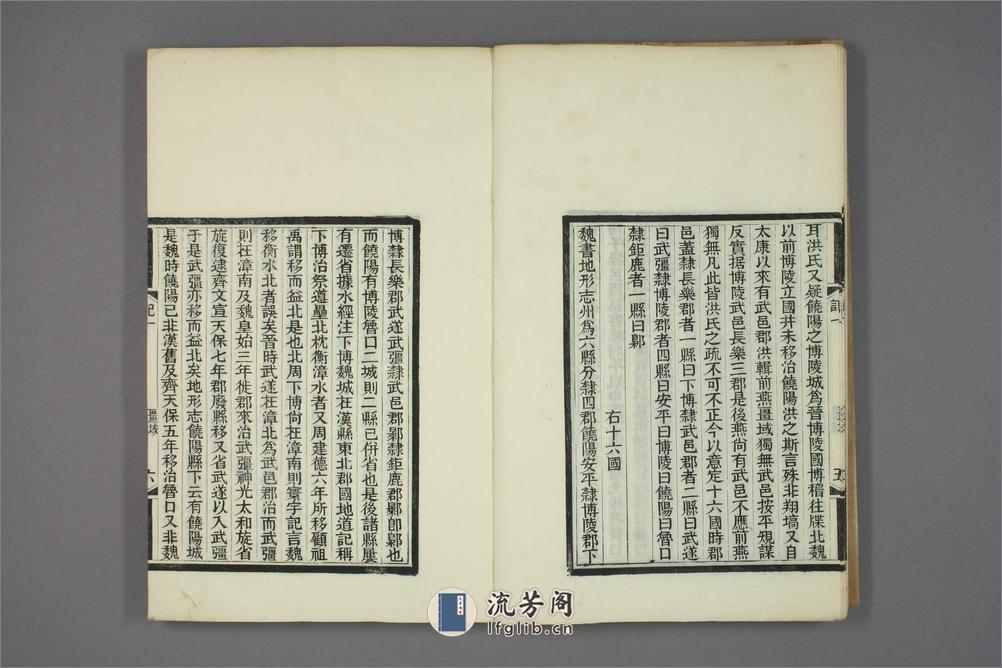 耳洪氏又疑饒陽之博陵城爲晉博陵國博稽往牒北魏
以前博陵立國并未移治饒陽洪之斯言殊非翔塙又自
太康以來有武邑郡洪輯前燕畺域獨無武邑按平規謀
反實据博陵武邑長樂三郡是後燕尙有武邑不應前燕
獨無凡此皆洪氏之疏不可不正今以意定十六國時郡
邑蓋隸長樂郡者一縣曰下博隸武邑郡者二縣曰武遂
曰武彊隸博陵郡者四縣曰安平曰博陵曰饒陽曰魯口
隸鉅鹿者一縣曰鄡
右十六國
魏書地形志州爲六縣分隸四郡饒陽安平隸博陵郡下
博隸長樂郡武遂武彊隸武邑郡鄡隸鉅鹿郡鄡卽鄡也
而饒陽有博陵魯口二城則二縣已併省也是後諸縣屢
有遷省據水經注下博魏城在漢縣東北郡國地道記稱
下博治祭遵壘北枕衡漳水者又周建德六年所移顧祖
禹謂移而益北是也北周下博尙在漳南則寰宇記言魏
移衡水北者誤矣晉時武遂在漳北爲武邑郡治而武彊
則在漳南及魏皇始三年徙郡來治武彊神光太和旋省
旋復逮齊文宣天保七年郡廢縣移又省武遂以入武彊
于是武彊亦移而益北矣地形志饒陽縣下云有饒陽城
是魏時饒陽已非漢舊及齊天保五年移治魯口又非魏
記一
疆域
五
六
流芳阁
lfglib.cn